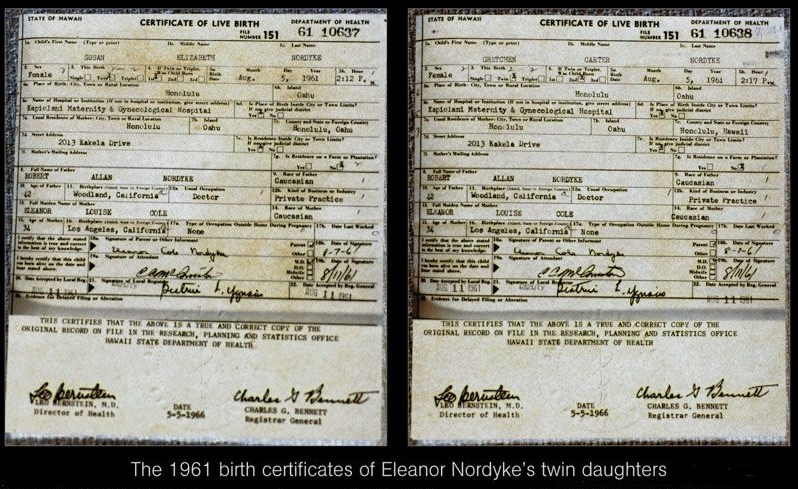 STATE OF HAWAII
CERTIFICATE OF LIVE BIRTH
DEPARTMENT OF HEALTH
FILE NUMBER 151 61 10637
1a. Child's First Name (Type or print) 1b. Middle Name 1c. Last Name
SUSAN ELIZABETH NORDYKE
Female Single Twin Triplet 1st 2nd 3rd Aug. 5, 1961 2:12 P.M.
6a. Place of Birth: City, Town or Rural Location 6b. Island
Honolulu Oahu
6c. Name of Hospital or Institution (If not in hospital or institution, give street address) 6d. Is Place of Birth Inside City or Town Limits?
Kapiolani Maternity & Gynecological Hospital
7a. Usual Residence of Mother: City, Town or Rural Location 7b. Island County and State or Foreign Country
Honolulu Oahu Honolulu, Oahu
7d. Street Address 7e. Is Residence Inside City or Town Limits?
2013 Kakela Drive
7f. Mother's Mailing Address 7g. Is Residence on a Farm or Plantation?
8. Full Name of Father 9. Race of Father
ROBERT ALLAN NORDYKE Caucasian
10. Age of Father 11. Birthplace 12a. Usual Occupation 12b. Kind of Business or Industry
42 Woodland, California Doctor Private Practice
13. Full Maiden Name of Mother 14. Race of Mother
ELEANOR LOUISE COLE Caucasian
Age of Mother 16. Birthplace 17a. Type of Occupation Outside Home During Pregnancy 17b. Date Last Worked
34 Los Angeles, California None
18a. Signature of Parent or Other Informant 18b. Date of Signature
Eleanor Cole Nordyke 8-7-61
19a. Signature of Attendant
8/11/61
20. Date Accepted by Local Reg. 21. Signature of Local Registrar 22. Date Accepted by Reg. General
AUG 11 1961
23. Evidence for Delayed Filing or Alteration
THIS CERTIFIES THAT THE ABOVE IS A TRUE AND CORRECT COPY OF THE
ORIGINAL RECORD ON FILE IN THE RESEARCH, PLANNING AND STATISTICS OFFICE
HAWAII STATE DEPARTMENT OF HEALTH
Leo Bernstein Charles G Bennett
LEO BERNSTEIN, M.D. DATE CHARLES G. BENNETT
Director of Health 5-5-1966 Registrar General
STATE OF HAWAII
CERTIFICATE OF LIVE BIRTH
DEPARTMENT OF HEALTH
FILE NUMBER 151 61 10638
1a. Child's First Name (Type or print) 1b. Middle Name 1c. Last Name
GRETCHEN CARTER NORDYKE
Female Single Twin Triplet 1st 2nd 3rd Aug. 5, 1961 2:17 P.M.
6a. Place of Birth: City, Town or Rural Location 6b. Island
Honolulu Oahu
6c. Name of Hospital or Institution (If not in hospital or institution, give street address) 6d. Is Place of Birth Inside City or Town Limits?
Kapiolani Maternity & Gynecological Hospital
7a. Usual Residence of Mother: City, Town or Rural Location 7b. Island 7c. County and State or Foreign Country
Honolulu Oahu Honolulu, Hawaii
7d. Street Address 7e. Is Residence Inside City or Town Limits?
2013 Kakela Drive
7f. Mother's Mailing Address 7g. Is Residence on a Farm or Plantation?
8. Full Name of Father 9. Race of Father
ROBERT ALLAN NORDYKE Caucasian
10. Age of Father 11. Birthplace 12a. Usual Occupation 12b. Kind of Business or Industry
42 Woodland, California Doctor Private Practice
13. Full Maiden Name of Mother 14. Race of Mother
ELEANOR LOUISE COLE Caucasian
Age of Mother 16. Birthplace 17a. Type of Occupation Outside Home During Pregnancy 17b. Date Last Worked
34 Los Angeles, California None
18a. Signature of Parent or Other Informant 18b. Date of Signature
Eleanor Cole Nordyke 8-7-61
19a. Signature of Attendant
8/11/61
20. Date Accepted by Local Reg. 21. Signature of Local Registrar 22. Date Accepted by Reg. General
AUG 11 1961
23. Evidence for Delayed Filing or Alteration
THIS CERTIFIES THAT THE ABOVE IS A TRUE AND CORRECT COPY OF THE
ORIGINAL RECORD ON FILE IN THE RESEARCH, PLANNING AND STATISTICS OFFICE
HAWAII STATE DEPARTMENT OF HEALTH
Leo Bernstein Charles G Bennett
LEO BERNSTEIN, M.D. DATE CHARLES G. BENNETT
Director of Health 5-5-1966 Registrar General
The 1961 birth certificates of Eleanor Nordyke's twin daughters